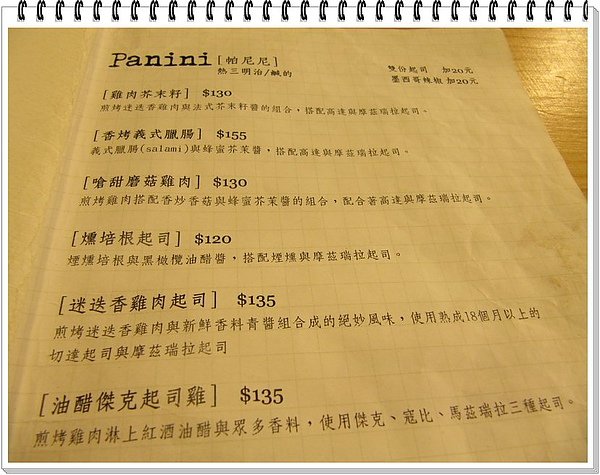 Panini [帕尼尼]
熱三明治/鹹的
雙份起司 加20元
墨西哥辣椒 加20元
[雞肉芥末籽] $130
煎烤迷迭香雞肉與法式芥末籽醬的組合，搭配高達與摩茲瑞拉起司。
[香烤義式臘腸] $155
義式臘腸(salami)與蜂蜜芥茉醬，搭配高達與摩茲瑞拉起司。
[嗆甜磨菇雞肉] $130
煎烤雞肉搭配香炒香菇與蜂蜜芥茉醬的組合，配合著高達與摩茲瑞拉起司。
[燻培根起司] $120
煙燻培根與黑橄欖油醋醬，搭配煙燻與摩茲瑞拉起司。
[迷迭香雞肉起司] $135
煎烤迷迭香雞肉與新鮮香料青醬組合成的絕妙風味，使用熟成18個月以上的
切達起司與摩茲瑞拉起司
[油醋傑克起司雞] $135
煎烤雞肉淋上紅酒油醋與眾多香料，使用傑克、寇比、馬茲瑞拉三種起司。